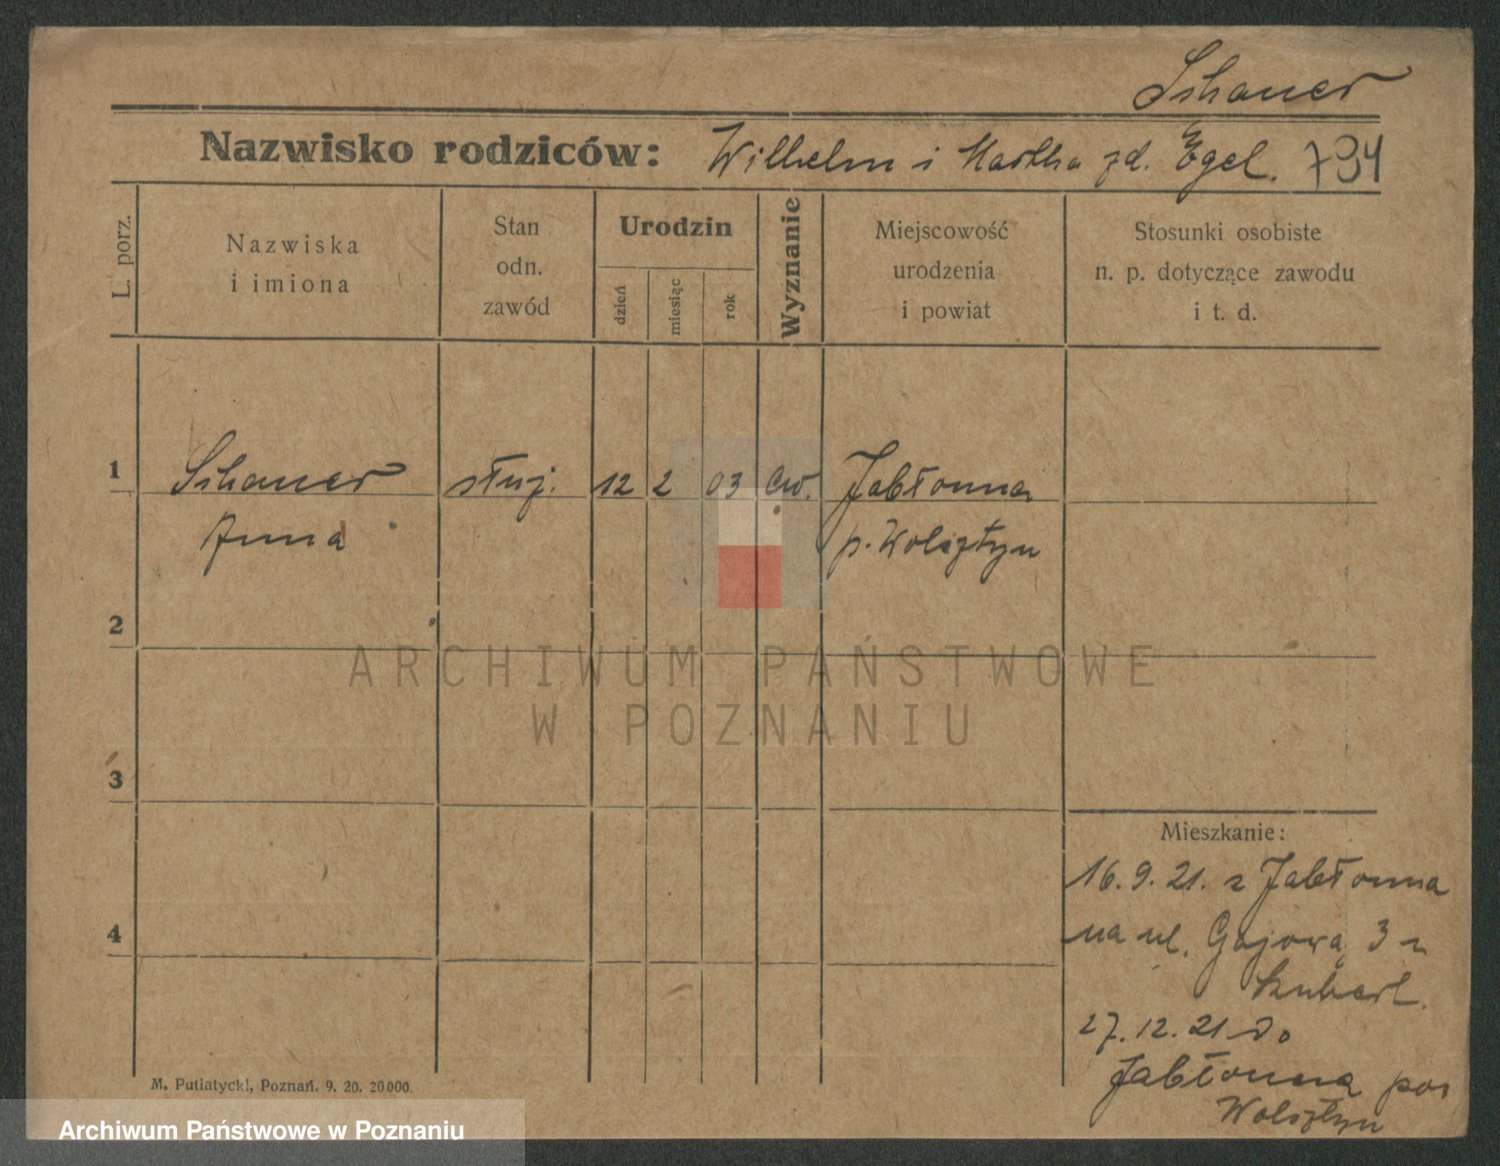 Schauer
Nazwisko rodziców: Wilhelm i Martha zd. Egel. 794
L. porz.
Nazwiska
i imiona
Stan
odn.
zawód
Urodzin
dzień
miesiąc
rok
Wyznanie
Miejscowość
urodzenia
i powiat
Stosunki osobiste
n. p. dotyczące zawodu
i t. d.
1 Schauer służ. 12 2 03 ew. Jabłonna
Anna p. Wolsztyn
2
ARCHIWUM PAŃSTWOWE
W POZNANIU
3
Mieszkanie:
16.9.21. z Jabłonna
4
na ul. Gajową 3 u
27.12.21 do
Jabłonna pow
Wolsztyn
M. Putiatycki, Poznań. 9. 20. 20000.
Archiwum Państwowe w Poznaniu